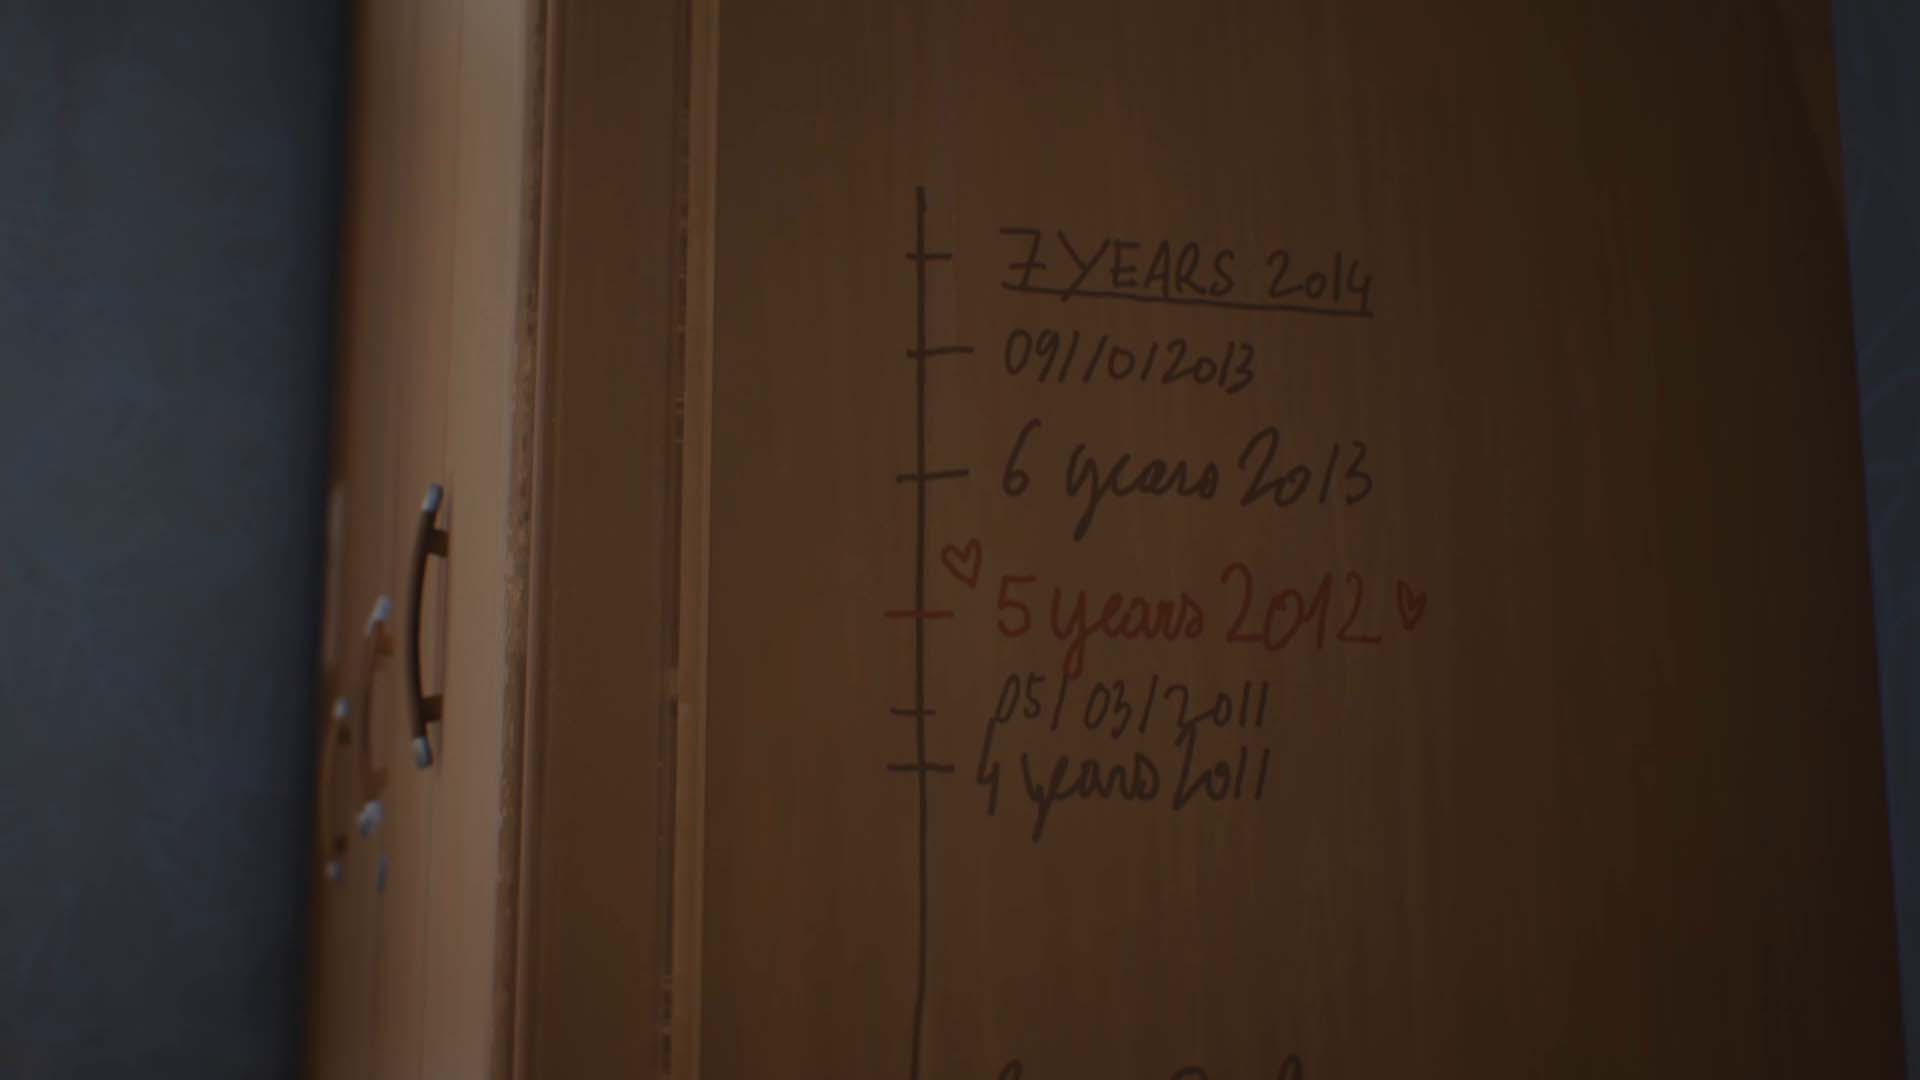 7 YEARS 2014
09/10/2013
6 years 2013
5 years 2012
05/03/2011
4 years 2011